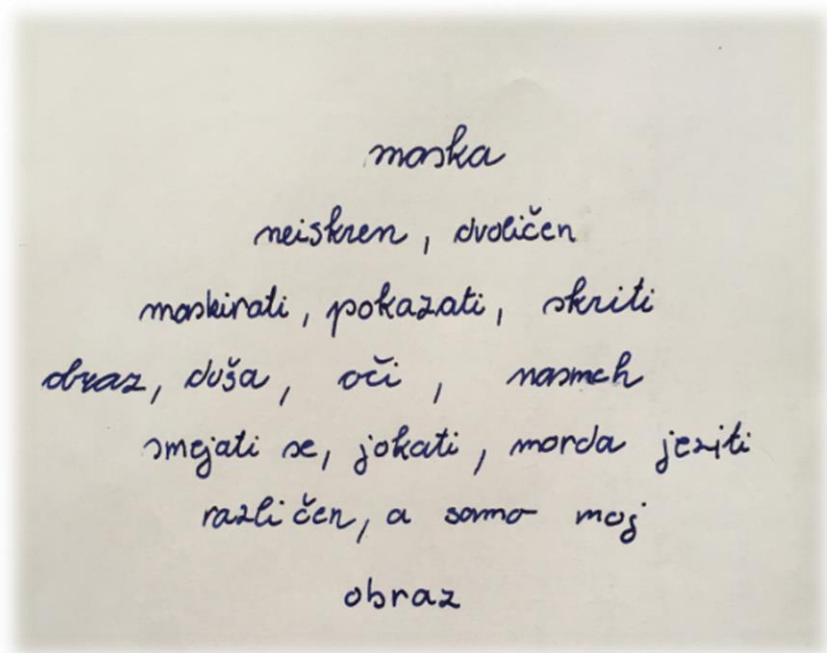 maska
neiskren, dvoličen
maskirati, pokazati, skriti
obraz, duša, oči, nasmeh
smejati se, jokati, morda jeziti
različen, a samo moj
obraz